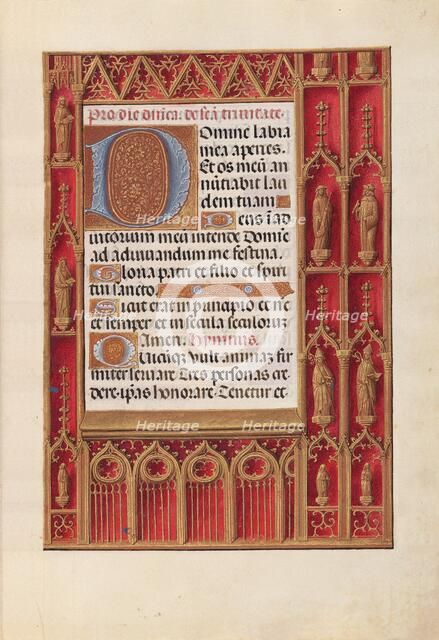 Pro die dñica. de scã trinitate.
Domine labia
mea aperies.
Et os meũ an
nũtiabit lau
dem tuam.
Deus ĩ ad
iutorium meũ intende Domĩe
ad adiuuandum me festina.
Gloria patri et filio et spiri
tui sancto.
Sicut erat ĩ principio et nẽ
et semper et in secula seculorũ
Amen. Hympnus.
Quicũq; vult animaz fir
miter seruare Tres personas cre
dere ipãs honorare Tenetur et
Heritage
Heritage
Heritage
Heritage
Heritage
Heritage